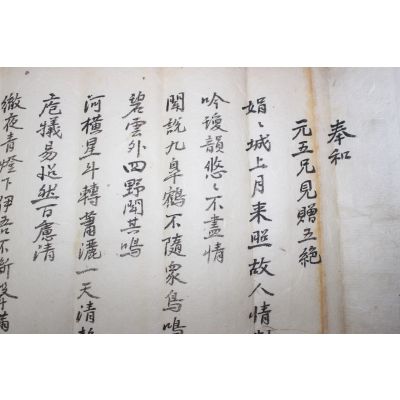 奉和
元五兄見贈五絶
娟〻城上月来照故人情
吟瓊韻悠〻不盡情
聞說九皐鶴不隨衆鳥鳴
碧雲外四野聞其鳴
河橫星斗轉蕭灑一天清
庖犧易超然百慮清
徹夜青燈下伊吾不斷